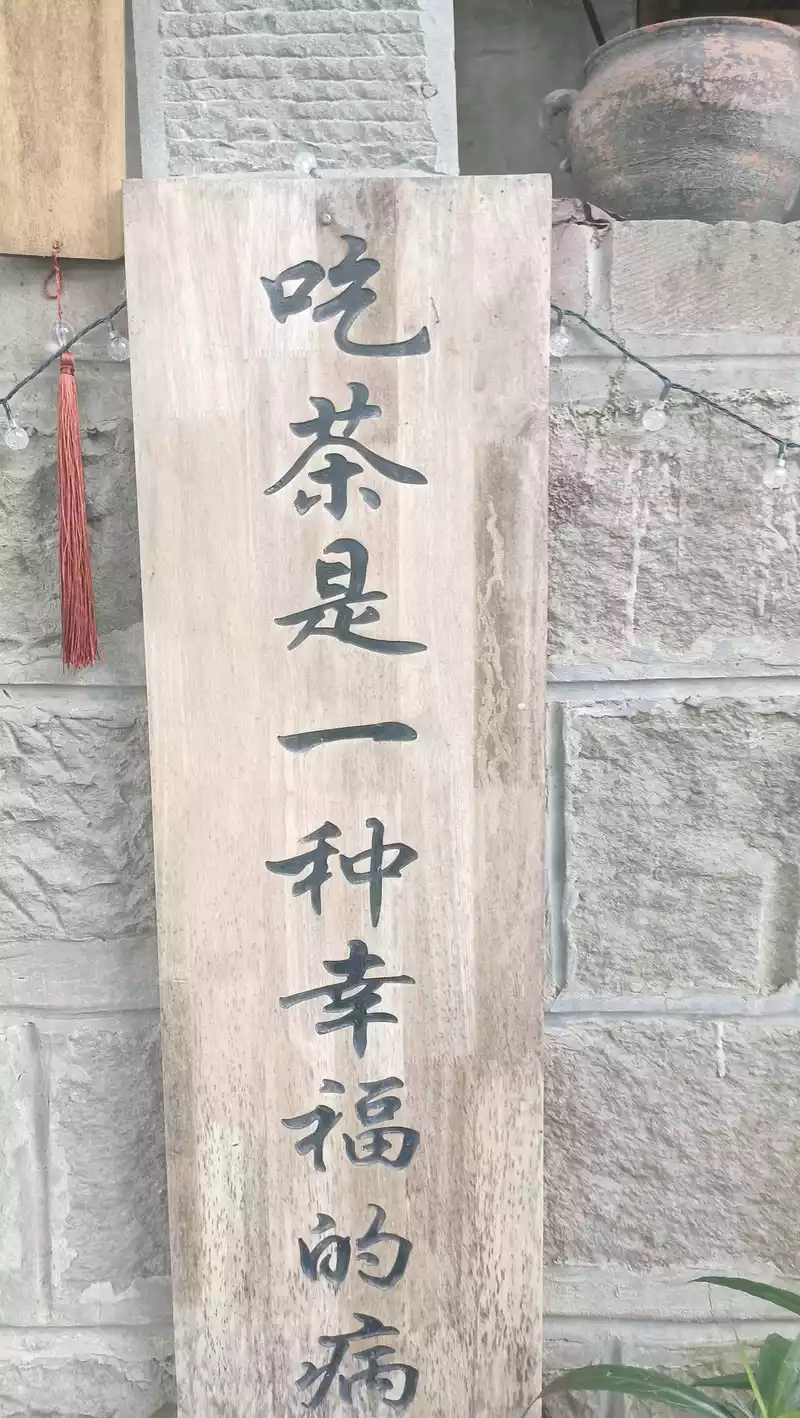 吃茶是一种幸福的病